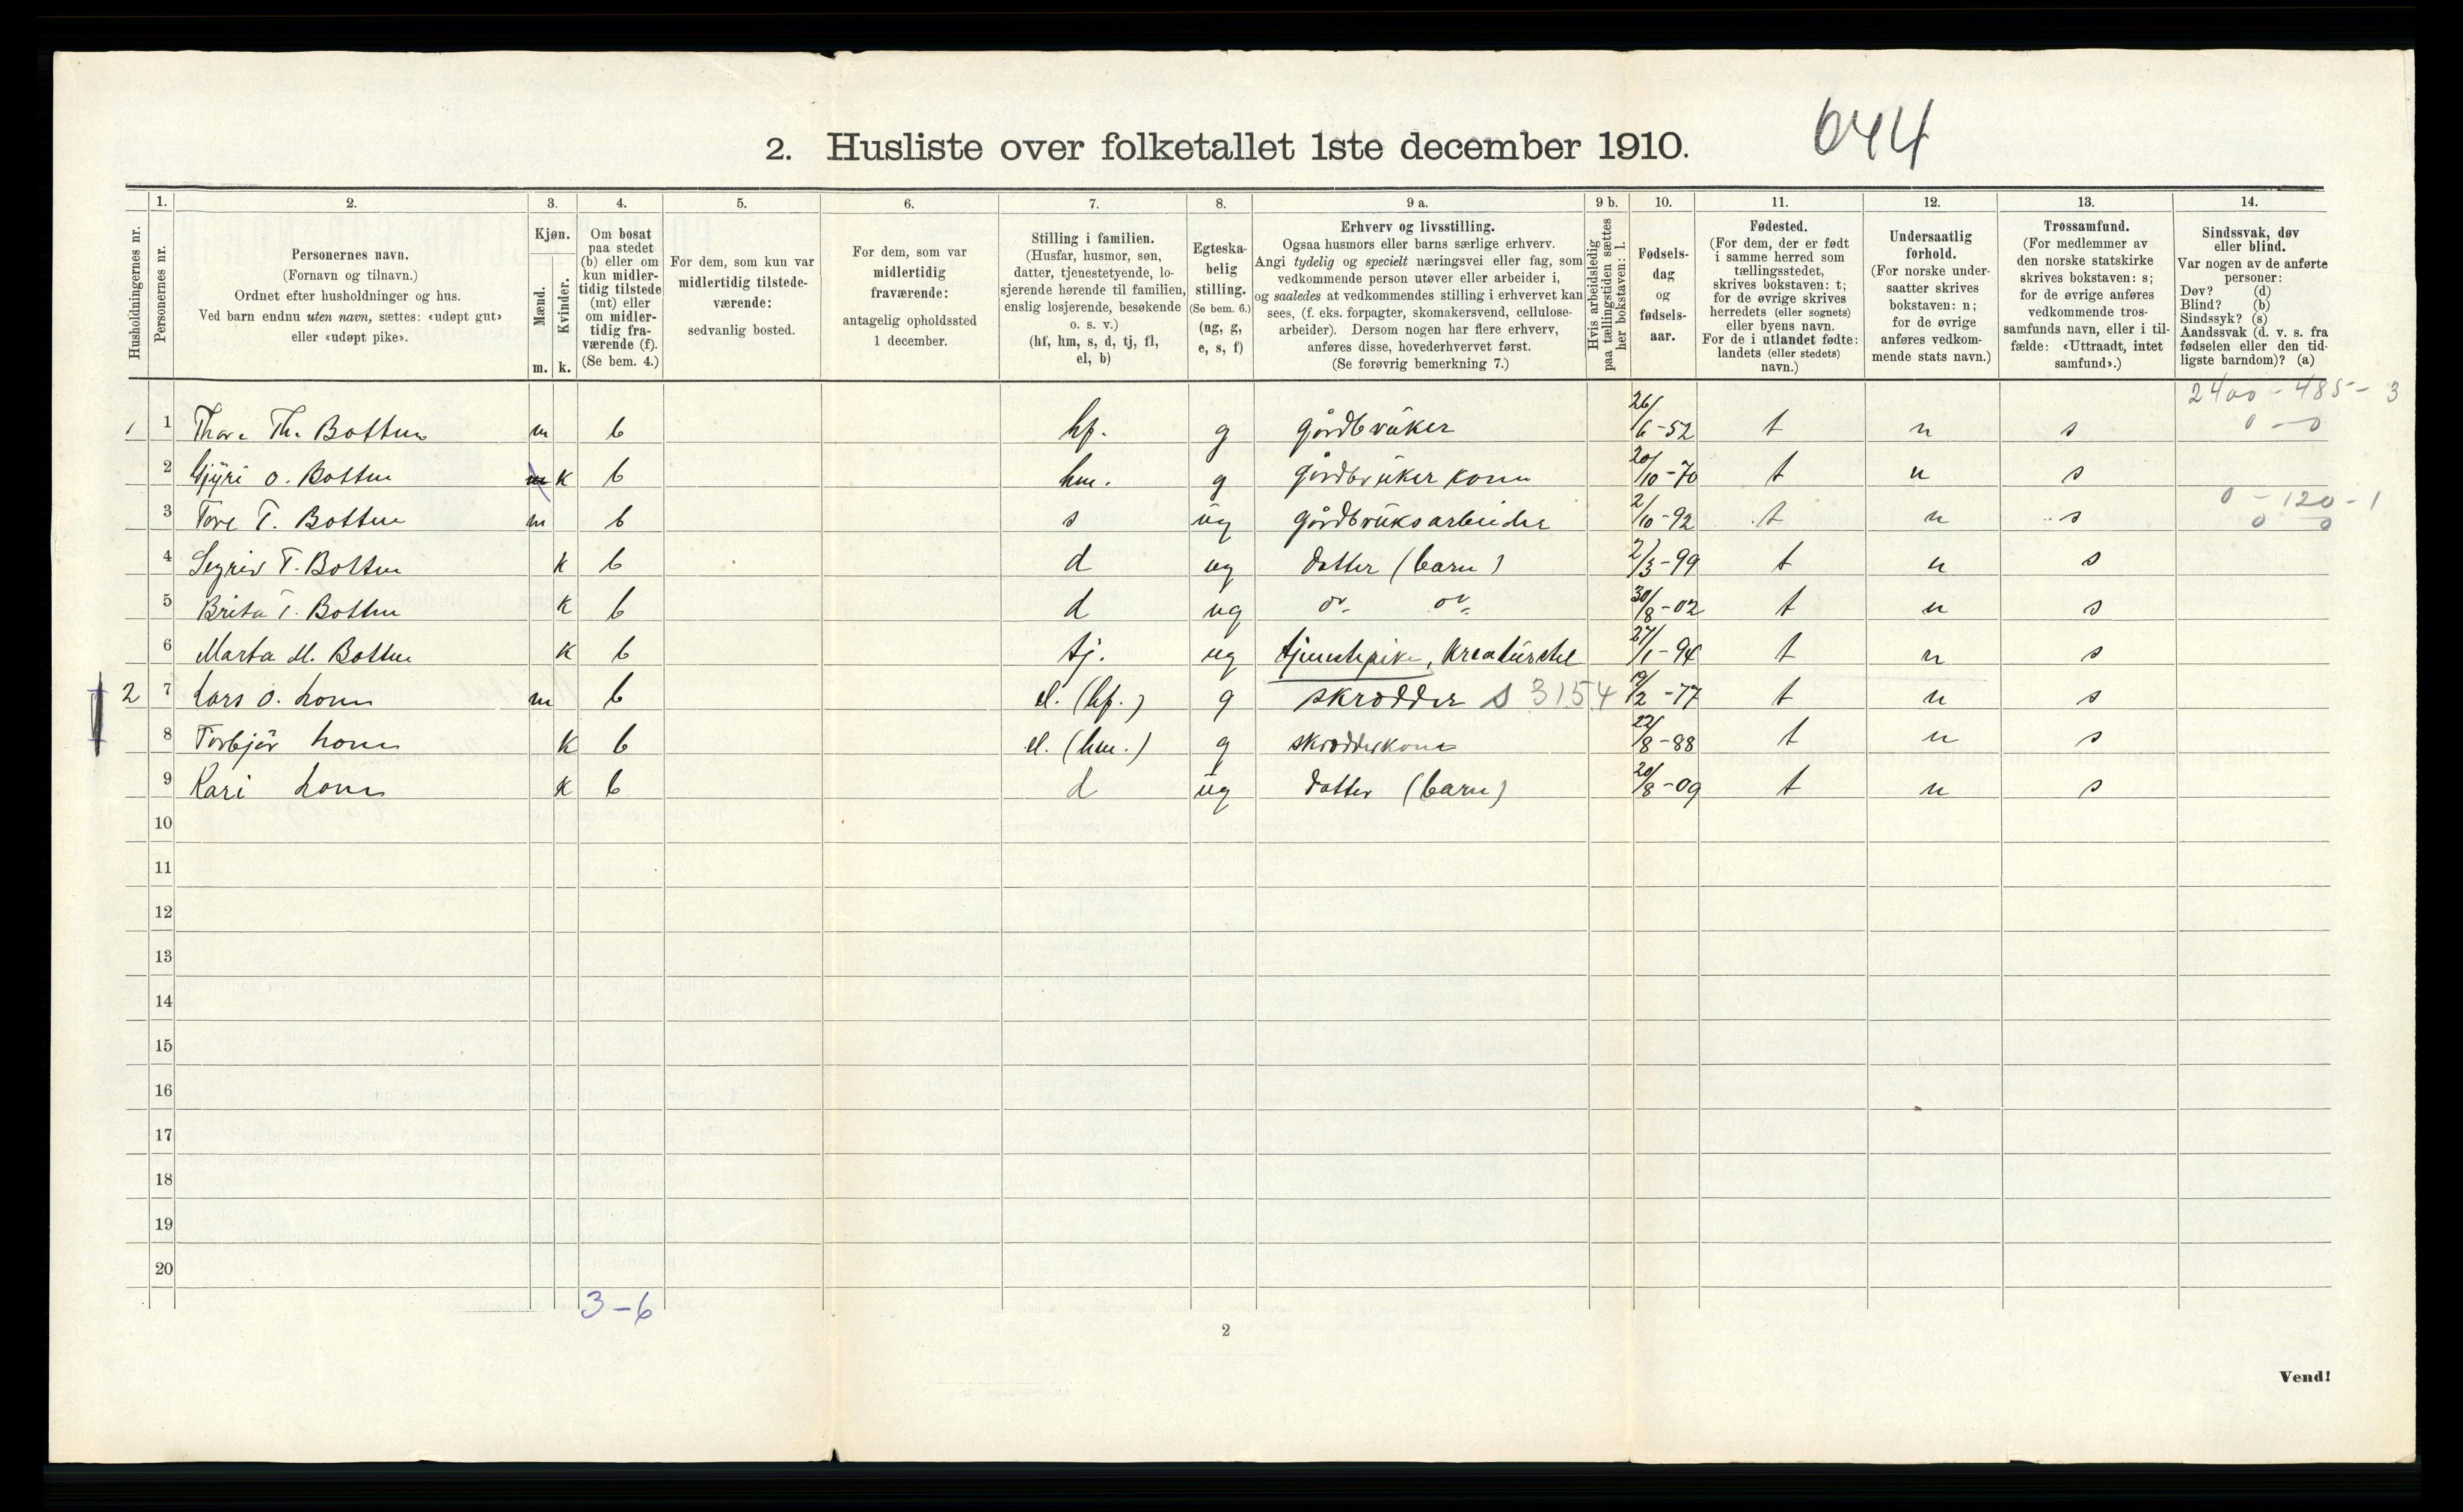 2. Husliste over folketallet 1ste december 1910. 644
Husholdningernes nr.
1. Personernes nr.
2. Personernes navn.
(Fornavn og tilnavn.)
Ordnet efter husholdninger og hus.
Ved barn endnu uten navn, sættes: «udøpt gut»
eller «udøpt pike».
3. Kjøn.
Mænd. m.
Kvinder. k.
4. Om bosat
paa stedet
(b) eller om
kun midler-
tidig tilstede
(mt) eller
om midler-
tidig fra-
værende (f).
(Se bem. 4.)
5. For dem, som kun var
midlertidig tilstede-
værende:
sedvanlig bosted.
6. For dem, som var
midlertidig
fraværende:
antagelig opholdssted
1 december.
7. Stilling i familien.
(Husfar, husmor, søn,
datter, tjenestetyende, lo-
sjerende hørende til familien,
enslig losjerende, besøkende
o. s. v.)
(hf, hm, s, d, tj, fl,
el, b)
8. Egteska-
belig
stilling.
(Se bem. 6.)
(ug, g,
e, s, f)
9 a. Erhverv og livsstilling.
Ogsaa husmors eller barns særlige erhverv.
Angi tydelig og specielt næringsvei eller fag, som
vedkommende person utøver eller arbeider i,
og saaledes at vedkommendes stilling i erhvervet kan
sees, (f. eks. forpagter, skomakersvend, cellulose-
arbeider). Dersom nogen har flere erhverv,
anføres disse, hovederhvervet først.
(Se forøvrig bemerkning 7.)
9 b. Hvis arbeidsledig
paa tællingstiden sættes
her bokstaven: l.
10. Fødsels-
dag
og
fødsels-
aar.
11. Fødested.
(For dem, der er født
i samme herred som
tællingsstedet,
skrives bokstaven: t;
for de øvrige skrives
herredets (eller sognets)
eller byens navn.
For de i utlandet fødte:
landets (eller stedets)
navn.)
12. Undersaatlig
forhold.
(For norske under-
saatter skrives
bokstaven: n;
for de øvrige
anføres vedkom-
mende stats navn.)
13. Trossamfund.
(For medlemmer av
den norske statskirke
skrives bokstaven: s;
for de øvrige anføres
vedkommende tros-
samfunds navn, eller i til-
fælde: «Uttraadt, intet
samfund».)
14. Sindssvak, døv
eller blind.
Var nogen av de anførte
personer:
Døv? (d)
Blind? (b)
Sindssyk? (s)
Aandssvak (d. v. s. fra
fødselen eller den tid-
ligste barndom)? (a)
2400 - 485 - 3
1 1 Thor. Th. Bottun m b hf. g gårdbrüker 26/6-52 t n s 0 - 0
2 Gjyri O. Bottun m k b hm. g gårdbrüker kone 20/10-70 t n s
0 - 120 - 1
3 Tore T. Bottun m b s ug gårdbrüksarbeider 2/10-92 t n s 0 0
4 Segrid T. Bottun k b d ug datter (barn) 2/3-99 t n s
5 Brita T. Bottun k b d ug do. do. 30/8-02 t n s
6 Marta M. Bottun k b tj. ug tjenestepike, kreatürstel 27/1-94 t n s
2 7 Lars O. Lonn m b el. (hf.) g skrædder S 3154 /2-77 t n s
8 Torbjör Lonn k b el. (hm.) g skrædderkone 22/8-88 t n s
9 Kari Lonn k b d ug datter (barn) 20/8-09 t n s
10
11
12
13
14
15
16
17
18
19
20
3-6
2
Vend!